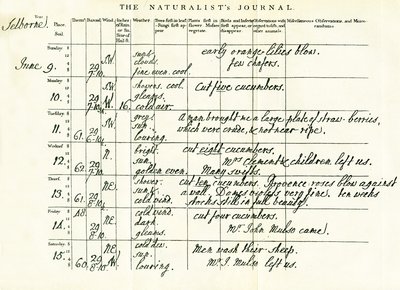 THE NATURALIST'S JOURNAL.
Selborne.
Year
Place.
Soil.
Therm.
Barom.
Wind.
Inches of Rain or Sn. Size of Hail-st.
Weather.
Trees first in leaf Fungi first appear
Plants first in flower: Mosses vegetate.
Birds and Insects first appear, or disappear.
Observations with regard to fish, and other animals.
Miscellaneous Observations, and Memorandums.
Sunday.
June 9.
29
7-10.
SW.
sun &
clouds.
fine even. cool.
early orange-lilies blow.
few chafers.
Monday
10.
29
7-10.
SW.
W.
16.
showers. cool.
gleams.
cold air.
Cut five cucumbers.
Tuesday
11.
61.
29
6-10.
W.
grey.
sun.
louring.
A man brought me a large plate of straw-berries,
which were crude, & not near ripe.
Wednesd.
12.
62.
29
N.
bright.
sun.
golden even.
cut eight cucumbers.
Mrs Clement & children left us.
Many swifts.
Thursd.
13.
61.
29
8-10.
NE.
shower.
sun &
cold wind.
cut ten cucumbers. Provence roses blow against
a wall. Dames violets very fine. ten weeks
stocks still in full beauty.
Friday
14.
NE.
cold wind.
dark
gleams.
cut four cucumbers.
Mr John Mulso came.
Saturday.
15.
60.
29
NE.
cold dew.
sun.
louring.
Men wash their sheep.
Mr J. Mulso left us.